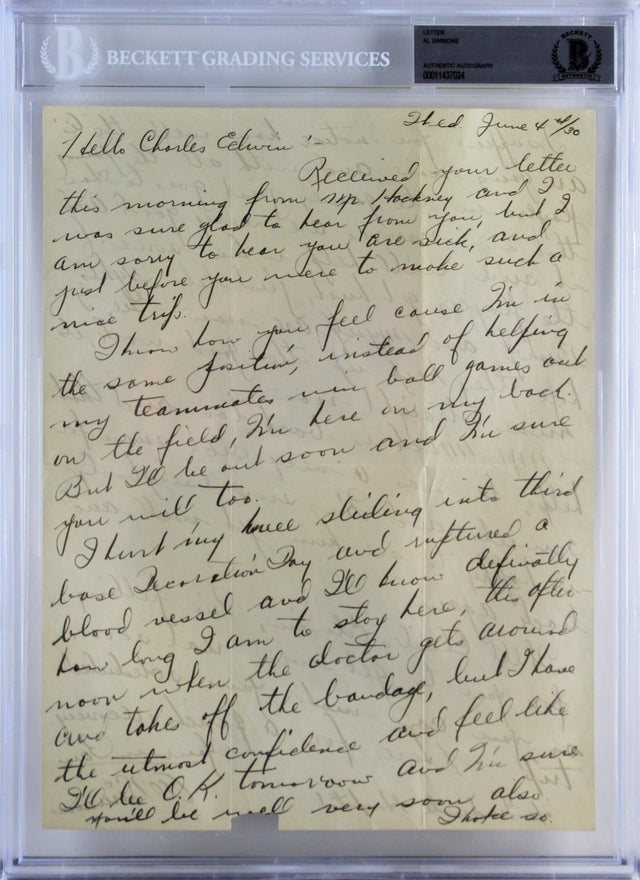 BECKETT GRADING SERVICES
LETTER
AL SIMMONS
AUTHENTIC AUTOGRAPH
00011437024
BECKETT
AUTHENTICATED
Wed June 4th/30
Hello Charles Edwin :-
Received your letter
this morning from Mr. Hackney and I
was sure glad to hear from you, but I
am sorry to hear you are sick, and
just before you were to make such a
nice trip.
I know how you feel cause I'm in
the same position, instead of helping
my teammates win ball games out
on the field, I'm here on my back.
But I'll be out soon and I'm sure
you will too.
I hurt my knee sliding into third
base Decoration Day and ruptured a
blood vessel and I'll know definatly
how long I am to stay here, this after-
noon when the doctor gets around
and takes off the bandage, but I have
the utmost confidence and feel like
I'll be O.K. tomorroow and I'm sure
you'll be well very soon also.
I hope so.